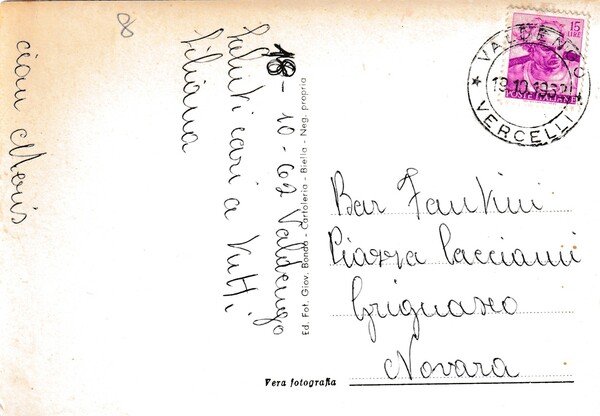 8
18-10-62 Valdengo
Saluti cari a tutti
Liliana
ciau Meris
Ed. Fot. Giov. Banda - Cartoleria - Biella - Neg. propria
15
LIRE
POSTE ITALIANE
VALDENGO
19.10.1962
VERCELLI
Bar Fantini
Piazza Cacciami
Grignasco
Novara
Vera fotografia